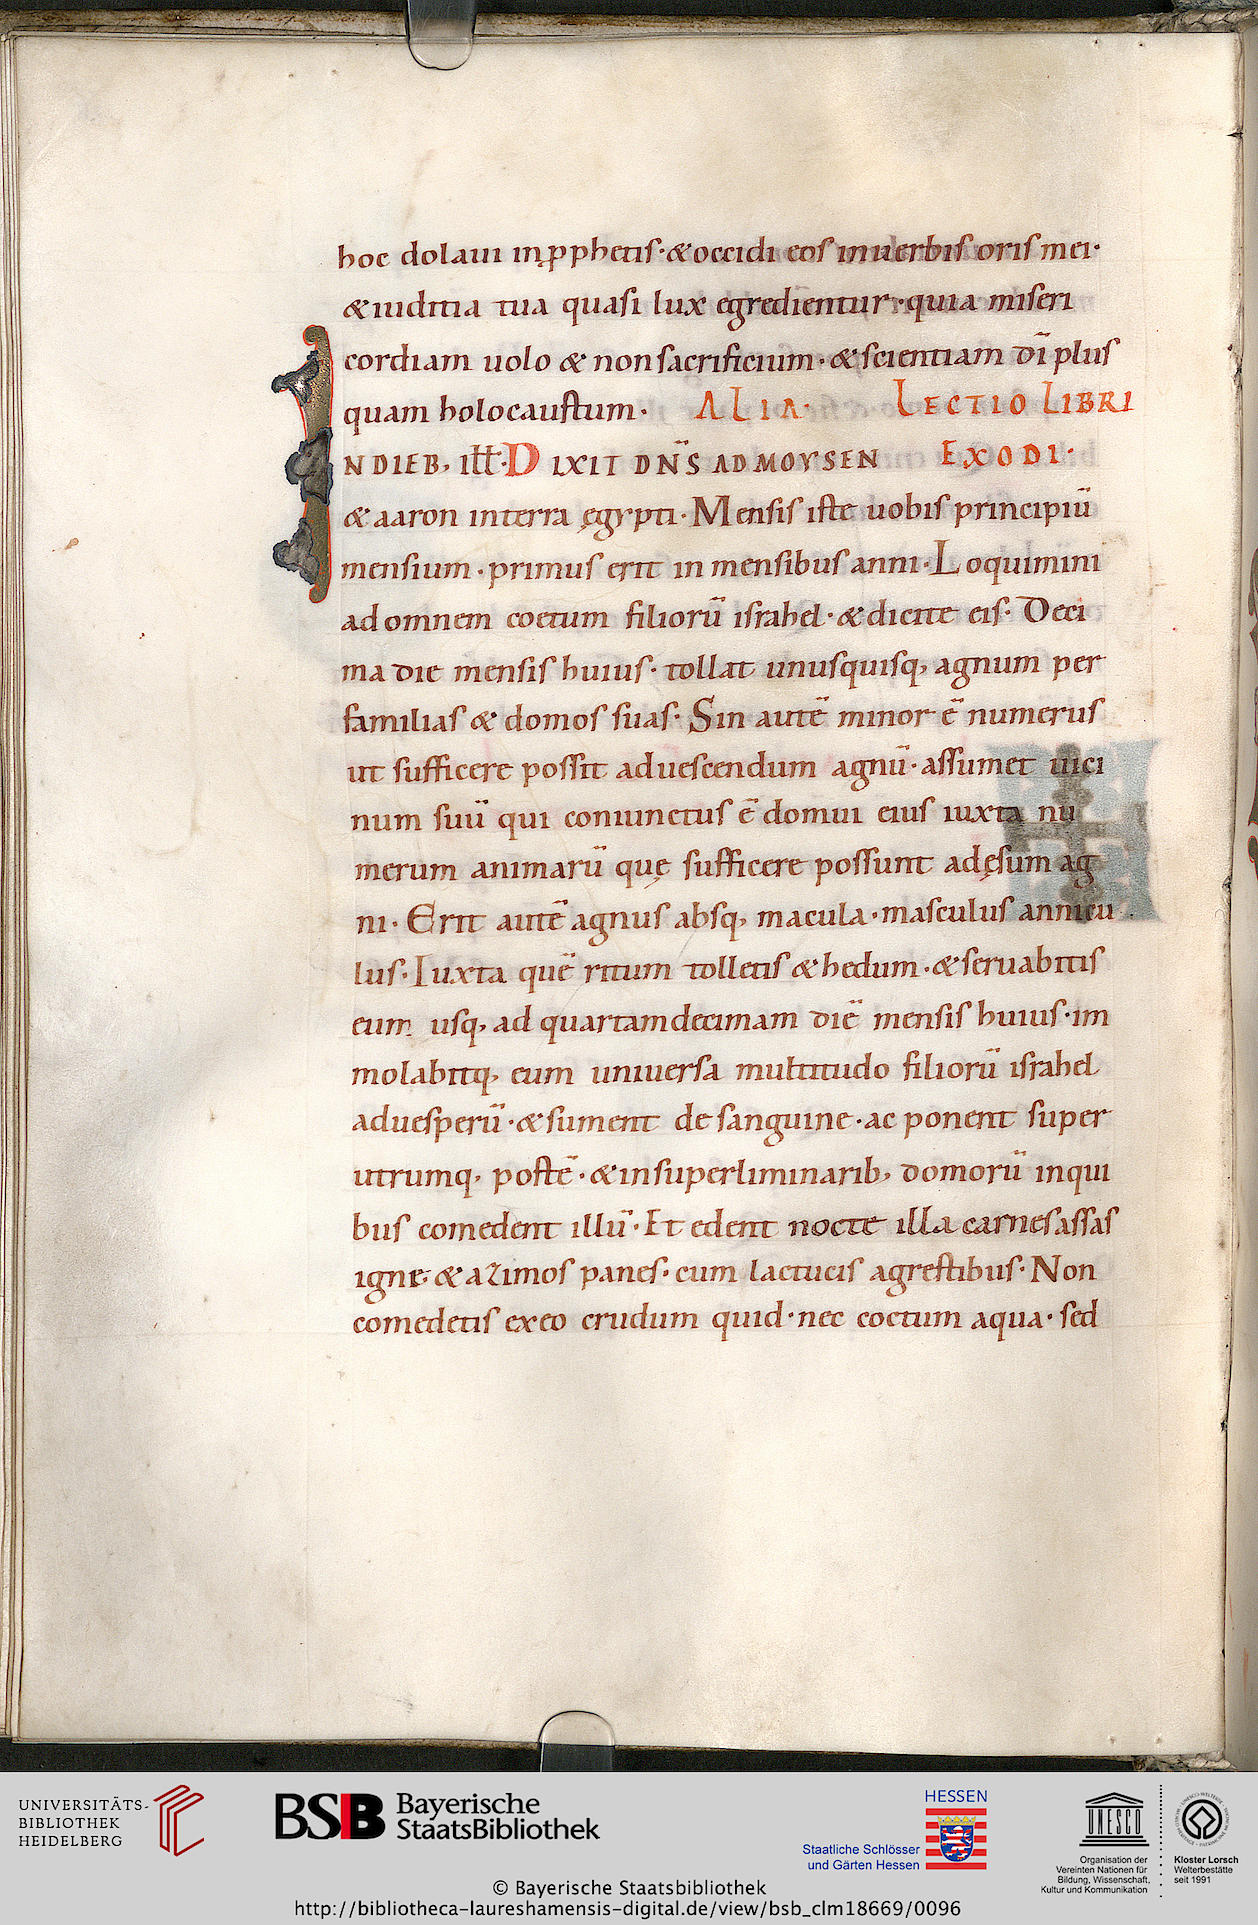 hoc dolaui inꝓphetis·&occidi eos inuerbis oris mei·
&iuditia tua quasi lux egredientur·quia miseri
cordiam uolo & nonsacrificium·&scientiam dī plus
quam holocaustum· ALIA· LECTIO LIBRI
INDIEB, iƚƚ·DIXIT DN̄S ADMOYSEN EXODI·
& aaron interra ęgypti·Mensis iste uobis principiū
mensium·primus erit in mensibus anni·Loquimini
ad omnem coetum filiorū israhel·&dicite eis·Deci
ma die mensis huius·tollat unusquisq, agnum per
familias & domos suas·Sin autē minor ē numerus
ut sufficere possit aduescendum agnū·assumet uici
num suū qui coniunctus ē domui eius iuxta nu
merum animarū quę sufficere possunt adęsum ag
ni·Erit autē agnus absq, macula·masculus annicu
lus·Iuxta quē ritum tolletis & hedum·&seruabitis
eum usq, ad quartamdecimam diē mensis huius·im
molabitq, eum uniuersa multitudo filiorū israhel
aduesperū·&sument de sanguine·ac ponent super
utrumq, postē·&insuperliminarib, domorū inqui
bus comedent illū·Et edent nocte illa carnes assas
igne·&azimos panes·cum lactucis agrestibus·Non
comedetis exeo crudum quid·nec coctum aqua·sed
UNIVERSITÄTS-
BIBLIOTHEK
HEIDELBERG
BSB Bayerische
StaatsBibliothek
HESSEN
Staatliche Schlösser
und Gärten Hessen
UNESCO
Organisation der
Vereinten Nationen für
Bildung, Wissenschaft,
Kultur und Kommunikation
Kloster Lorsch
Welterbestätte
seit 1991
© Bayerische Staatsbibliothek
http://bibliotheca-laureshamensis-digital.de/view/bsb_clm18669/0096